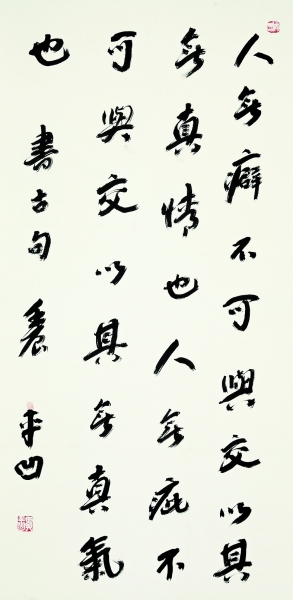 人無癖不可與交以其
無真情也人無疵不
可與交以其無真氣
也 書古句 平凹